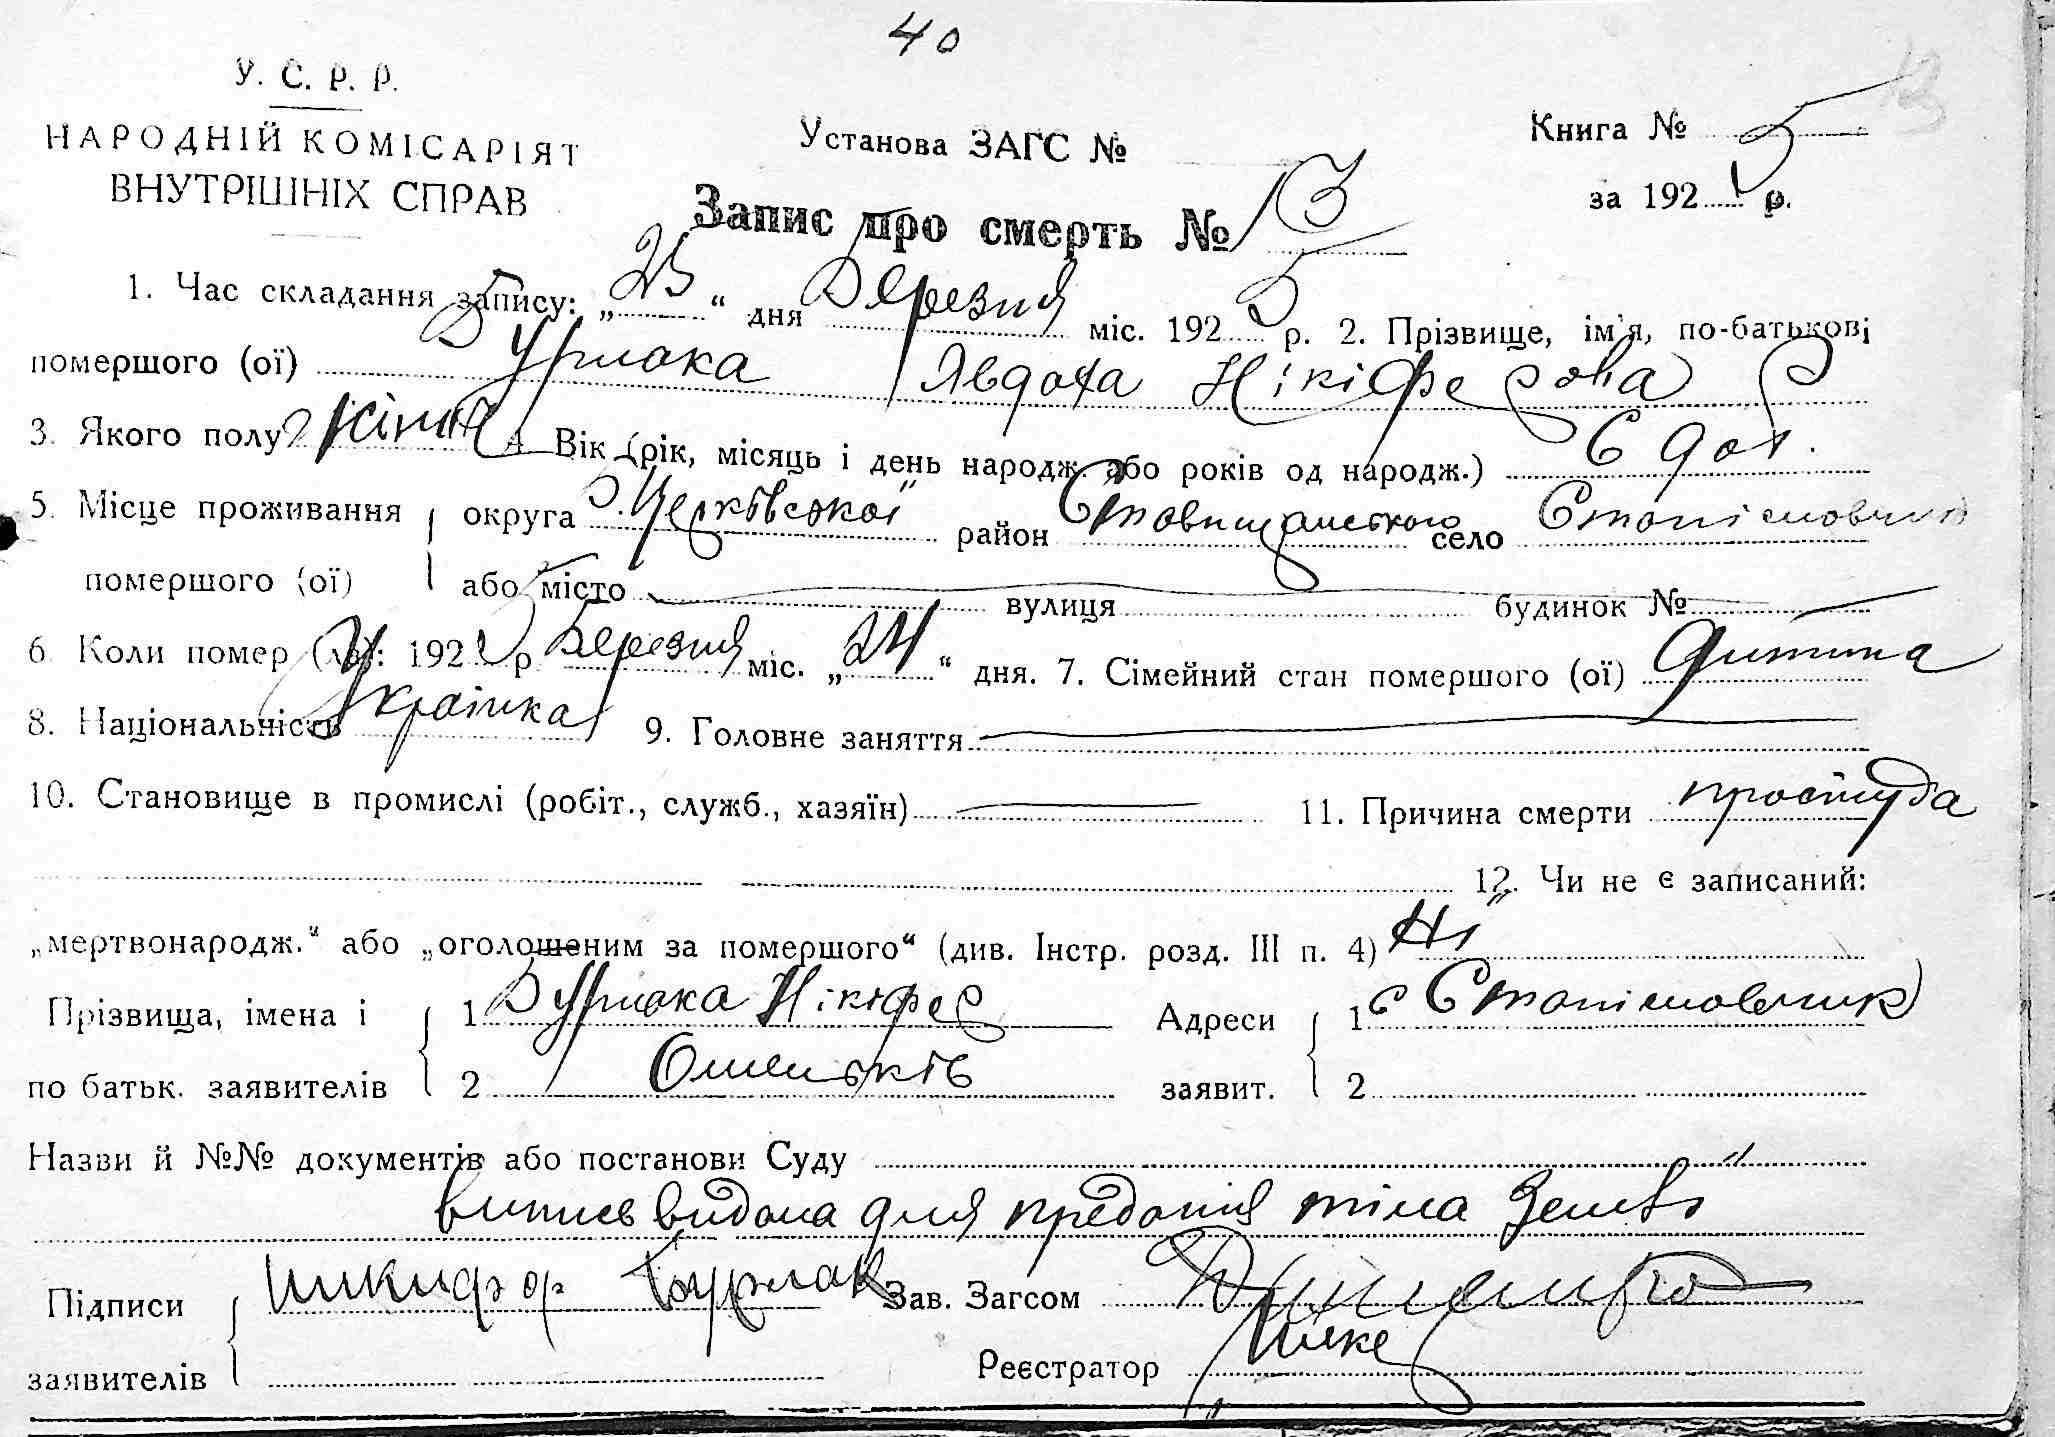 40
У. С. Р. Р.
НАРОДНІЙ КОМІСАРІЯТ
ВНУТРІШНІХ СПРАВ
Установа ЗАГС №
Книга № 5
за 1925 р.
13
Запис про смерть № 13
1. Час складання запису: „25“ дня Березня міс. 1925 р. 2. Прізвище, ім'я, по-батькові
помершого (ої) Бурлака Явдоха Нікіферова
3. Якого полу жіноч 4. Вік (рік, місяць і день народж. або років од народж.) 6 год.
5. Місце проживання округа Б.Церківської район Ставищанського село Станіславчик
помершого (ої) або місто вулиця будинок №
6. Коли помер (ла): 1925 р. Березня міс. „24“ дня. 7. Сімейний стан помершого (ої) дитина
8. Національність Українка 9. Головне заняття
10. Становище в промислі (робіт., служб., хазяїн) 11. Причина смерти простуда
12. Чи не є записаний:
„мертвонародж.“ або „оголошеним за помершого“ (див. Інстр. розд. III п. 4) Ні
Прізвища, імена і 1 Бурлака Нікіфер Адреси 1 с Станіславчик
по батьк. заявителів 2 Омельків заявит. 2
Назви й №№ документів або постанови Суду
випись видана для предания тіла землі
Підписи Никифор Бурлак Зав. Загсом
заявителів Реєстратор